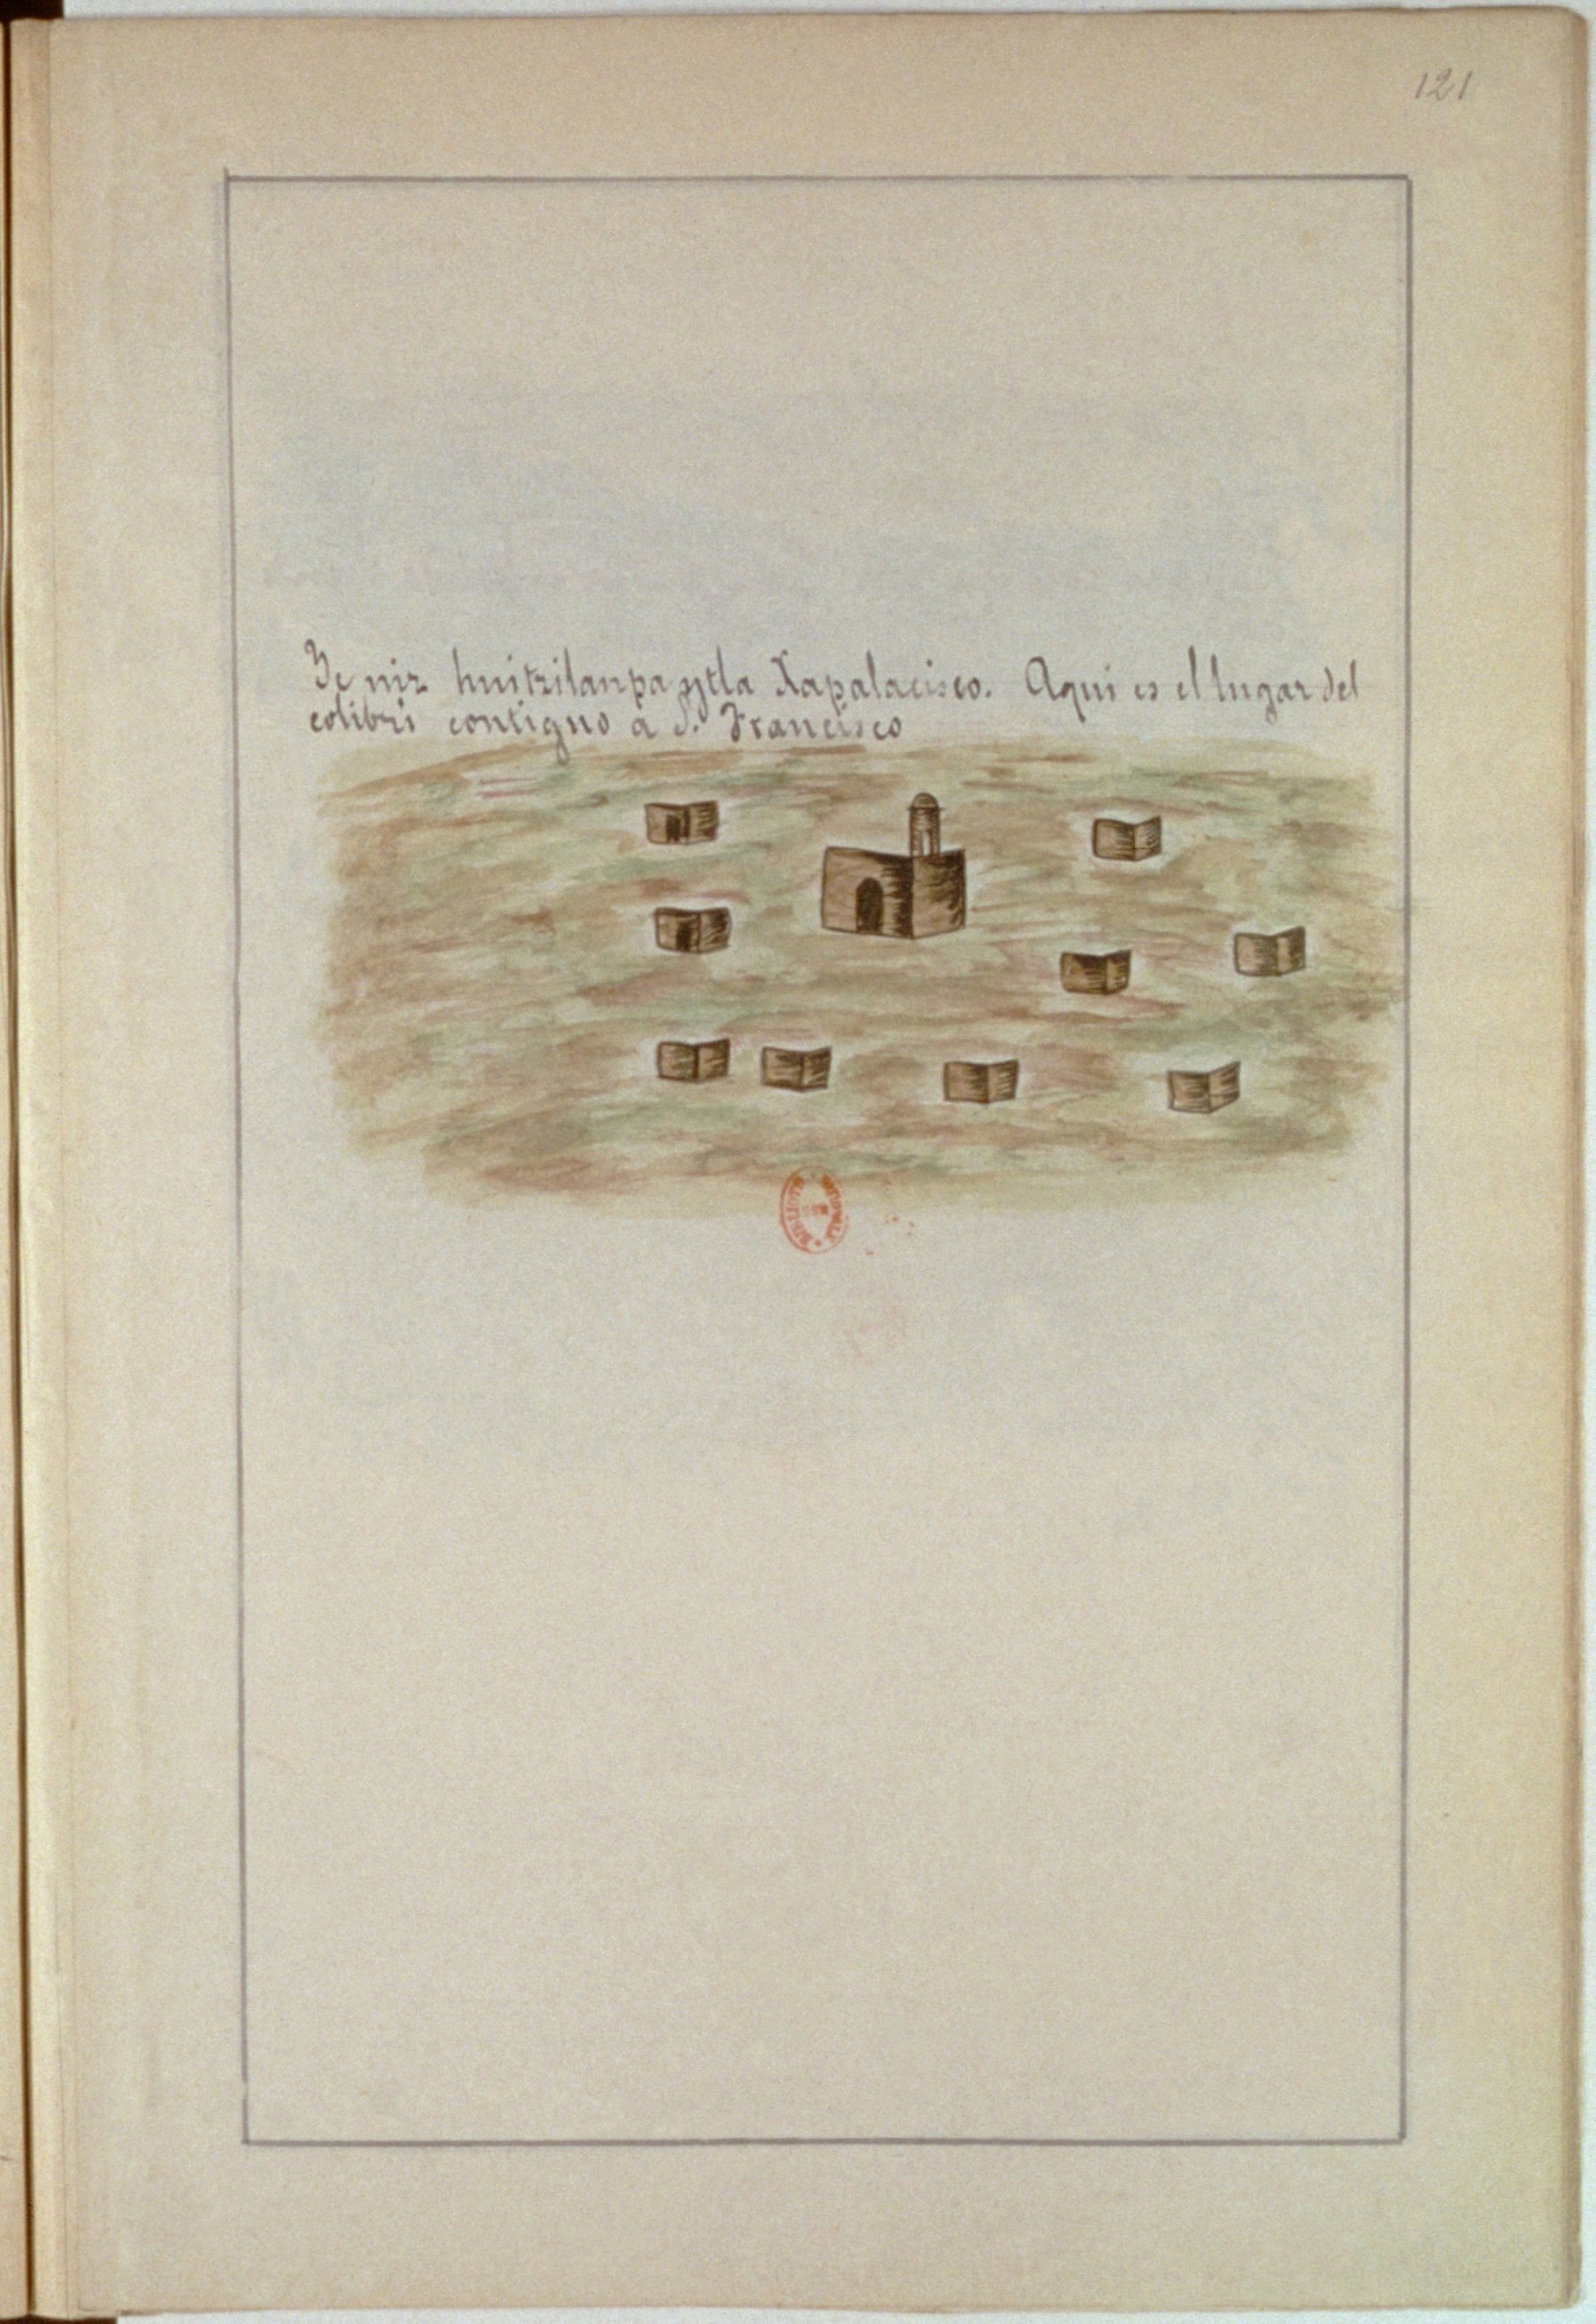 121
Ye niz huitzilanpa ytla Xapalacisco. Aqui es el lugar del
colibri contiguo a S. Francisco